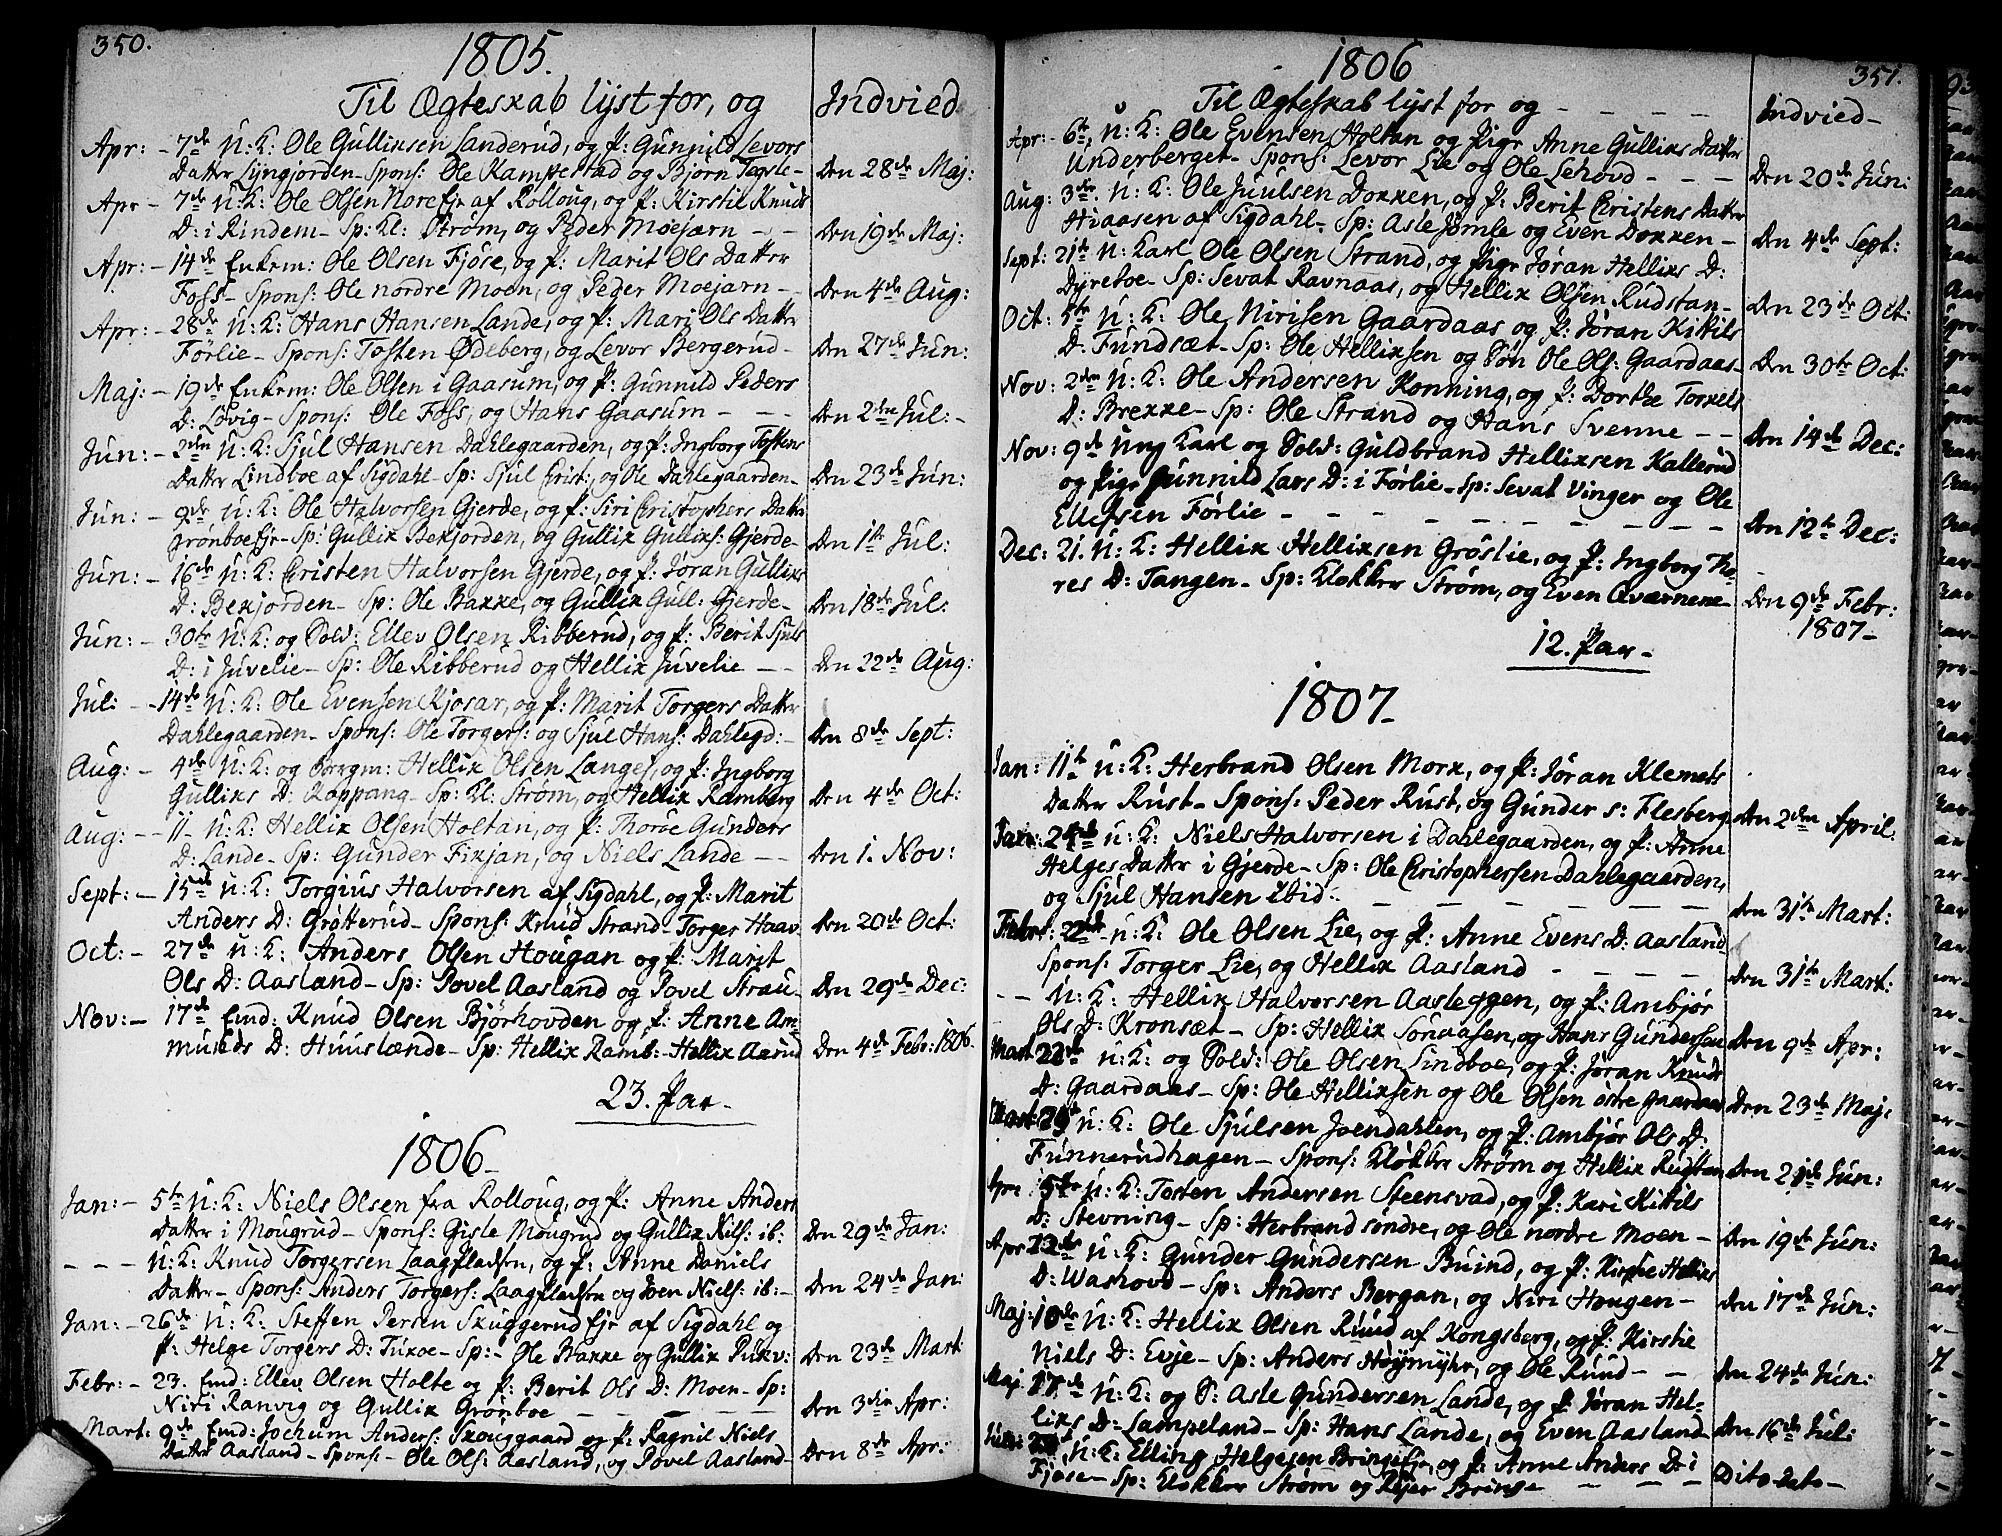 350.
1805.
Til Ægteskab lyst for, og
Indvied
Apr: - 7de U: K: Ole Gulliksen Landerud, og P: Gunnild Levors
Datter Lyngjorden - Spons: Ole Kampestad og Bjørn Tegsle -
Den 28de Maj:
Apr - 7de U: K: Ole Olsen Norefjr af Rolloug, og P: Kirstil Knuds
D: i Rindem - Sp: Kl: Strøm, og Peder Moejarn - -
Den 19de Maj:
Apr: - 14de Enkem: Ole Olsen Fjøse, og P: Marit Ols Datter
Foss - Spons: Ole nordre Moen, og Peder Moejarn -
Den 4de Aug:
Apr: - 28de U: K: Hans Hansen Lande, og P: Mari Ols Datter
Førlie - Spons: Tosten Ødeberg, og Levor Bergerud -
Den 27de Jun:
Maj: - 19de Enkem: Ole Olsen i Gaasum, og P: Gunnild Peders
D: Løvig - Spons: Ole Foss, og Hans Gaasum - - -
Den 2den Jul: -
Jun: - 2den U: K: Sjul Hansen Dahlegaarden, og P: Ingborg Tostens
Datter Lindboe af Sigdahl - Sp: Sjul Christ:, og Ole Dahlegaarden -
Den 23de Jun:
Jun: - 9de U: K: Ole Halvorsen Gjerde, og P: Siri Christophers Datter
Grønboefjr - Sp: Gullik Bekjorden, og Gullik Gulliks: Gjerde -
Den 1te Jul:
Jun: - 16de U: K: Christen Halvorsen Gjerde, og P: Jøran Gulliks
D: Bekjorden - Sp: Ole Bakke, og Gullik Gull: Gjerde -
Den 18de Jul:
Jun: - 30te U: K: og Sold: Ellev Olsen Ribberud, og P: Berit Sjuls
D: i Juvelie - Sp: Ole Ribberud og Hellik Juvelie - -
Den 22de Aug:
Jul: - 14de U: K: Ole Evensen Kjosar, og P: Marit Torgers Datter
Dahlegaarden - Spons: Ole Torgers: og Sjul Hans: Dahlegd: -
Den 8de Sept:
Aug: - 4de U: K: og Bergm: Hellik Olsen Langes, og P: Ingborg
Gulliks D: Kappang - Sp: Kl: Strøm, og Hellik Ramberg
Den 4de Oct:
Aug: - 11- U: K: Hellik Olsen Holtan, og P: Thoroe Gunders
D: Lande - Sp: Gunder Fikjan, og Niels Lande - -
Den 1. Nov:
Sept: - 15de U: K: Torgius Halvorsen af Sigdahl, og P: Marit
Anders D: Grøtterud - Spons: Knud Strand - Torger Haav
Den 20de Oct:
Oct: - 27de U: K: Anders Olsen Hougan og P: Marit
Ols D: Aasland - Sp: Povel Aasland og Povel Strau -
Den 29de Dec:
Nov: - 17de Emd: Knud Olsen Bjørhovden og P: Anne Am-
munds D: Huuslænde - Sp: Hellik Ramb: - Hellik Aarud
Den 4de Febr: 1806.
23. Par -
1806 -
Jan: - 5te U: K: Niels Olsen fra Rolloug, og P: Anne Anders
Datter i Mougrud - Spons: Gisle Mougrud og Gullik Nils: ib:
Den 29de Jan:
- - - U: K: Knud Torgersen Laagpladsen, og P: Anne Daniels
Datter - Spons: Anders Torgers: Laagpladsen og Joen Niels: ib: -
Den 24de Jan:
Jan: - 26de U: K: Steffen Persen Skuggerudfjr af Sigdahl og
P: Helge Torgers D: Tukoe - Sp: - Ole Bakke og Gullik Rukv:
Den 23de Mart:
Febr: - 23. Emd: Ellev Olsen Holte og P: Berit Ols D: Moen - Sp:
Niri Ranvig og Gullik Grønboe - - - - -
Den 3die Apr:
Mart: 9de Emd: Jochum Anders: Skouggaard og P: Ragnil Niels
Datter Aasland - Spons: - Ole Ols: Aasland, og Povel Aasland -
Den 8de Apr:
351.
1806
Til Ægteskab lyst for og - - - -
Indvied -
Apr: - 6te, U: K: Ole Evensen Holtan og Pige Anne Gulliks Datter
Underberget - Spons: Levor Lie og Ole Lehovd - - -
Den 20de Jun:
Aug: 3die. U: K: Ole Juulsen Dokken, og P: Berit Christens Datter
Hiaasen af Sigdahl - Sp: Asle Jømle og Even Dokken -
Den 4de Sept:
Sept: 21te U: Karl Ole Olsen Strand, og Pige Jøran Helliks D:
Dyretoe - Sp: Sevat Ravnaas, og Hellik Olsen Rudstan -
Den 23de Oct:
Oct: 5te U: K: Ole Nirisen Gaardaas og P: Jøran Kittils
D: Fundsæt - Sp: Ole Helliksen og Søn Ole Ols: Gaardaas -
Den 30te Oct:
Nov: 2den U: K: Ole Andersen Konning, og P: Dorthe Torkels
D: Brekke - Sp: Ole Strand og Hans Svenne - -
Den 14de Dec:
Nov: 9de Ung Karl og Sold: Guldbrand Helliksen Kallerud
og Pige Gunnild Lars D: i Førlie - Sp: Sevat Vinger og Ole
Ellefsen Førlie - - - - - - - -
Den 12te Dec:
Dec: 21. U: K: Hellik Helliksen Grøslie, og P: Ingborg Tho-
res D: Tangen - Sp: Klokker Strøm, og Even Qværnene -
Den 9de Febr:
1807 -
12. Par -
1807 -
Jan: 11te U: K: Herbrand Olsen Mork, og P: Jøran Klemets
Datter Rust - Spons: Peder Rust, og Gunder s: Flesberg
Den 2den April.
U: K: Niels Halvorsen i Dahlegaarden, og P: Anne
Helges Datter i Gjerde - Sp: Ole Christophersen Dahlegaarden,
og Sjul Hansen ibid: - - - - -
Den 31te Mart:
Febr: 22de U: K: Ole Olsen Lie, og P: Anne Evens D: Aasland
Spons: Torger Lie, og Hellik Aasland - - - -
Den 31te Mart:
- - U: K: Hellik Halvorsen Aasleggen, og P: Ambjør
Ols D: Kronsæt - Sp: Hellik Sønaasen, og Hans Gundersen
Den 9de Apr:
Mart: 22de U: K: og Sold: Ole Olsen Lindboe, og P: Jøran Knuds
D: Gaardaas - Sp: Ole Helliksen og Ole Olsen østre Gaardaas
Den 23de Maj:
Mart: 29 U: K: Ole Sjulsen Joendahlen, og P: Ambjør Ols D:
Funnerudhagen - Spons: Klokker Strøm og Hellik Rudstan
Den 21de Jun:
Apr: 5te U: K: Tosten Andersen Steensvad, og P: Kari Kittils
D: Stevning - Sp: Herbrand søndre, og Ole nordre Moen -
Den 19de Jun:
Apr 12te U: K: Gunder Gundersen Buind, og P: Kirstie Helliks
D: Washovd - Sp: Anders Bergan, og Niri Hougen -
Den 17de Jun:
Maj: 10de U: K: Hellik Olsen Ruud af Kongsberg, og P: Kirstie
Niels D: Evje - Sp: Anders Høymyhr, og Ole Ruud - -
Den 24de Jun:
Maj 17de U: K: og S: Asle Gundersen Lande, og P: Jøran Hel-
liks D: Lampeland - Sp: Hans Lande, og Even Aasland
Den 16de Jul:
U: K: Elling Helgesen Bringefjr, og P: Anne Anders D: i
Fjøse - Sp: Klokker Strøm og Rejer Bringe - - - -
Dito dato -